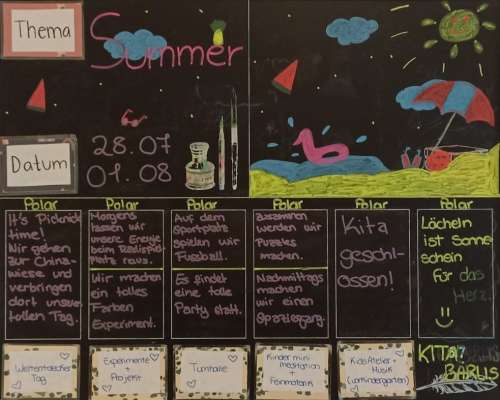 Thema
Summer
Datum
28.07
01.08
Polar
Polar
Polar
Polar
Polar
Polar
It's Picknick
time!
Wir gehen
zur China-
wiese und
verbringen
dort unseren
tollen Tag.
Morgens
lassen wir
unsere Energie
beim
raus.
Wir machen
ein tolles
Farben
Experiment.
Auf dem
Sportplatz
spielen wir
Fussball.
Es findet
eine tolle
Party statt.
Zusammen
werden wir
Puzzles
machen.
Nachmittags
machen
wir einen
Spaziergang.
Kita
geschl-
ossen!
Lächeln
ist Sonne
schein
Für das
Herz.
Weltentdecker
Tag
Experimente
+
Projekt
Turnhalle
Kinder mini
meditation
+
Feinmotorik
Kids Atelier +
Musik
KITA
BARLIS